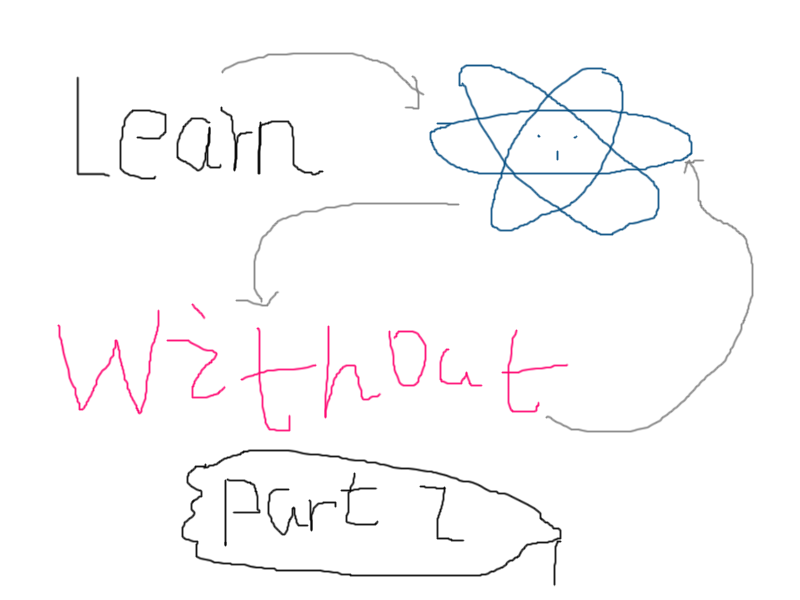 Learn
Without
Part 2